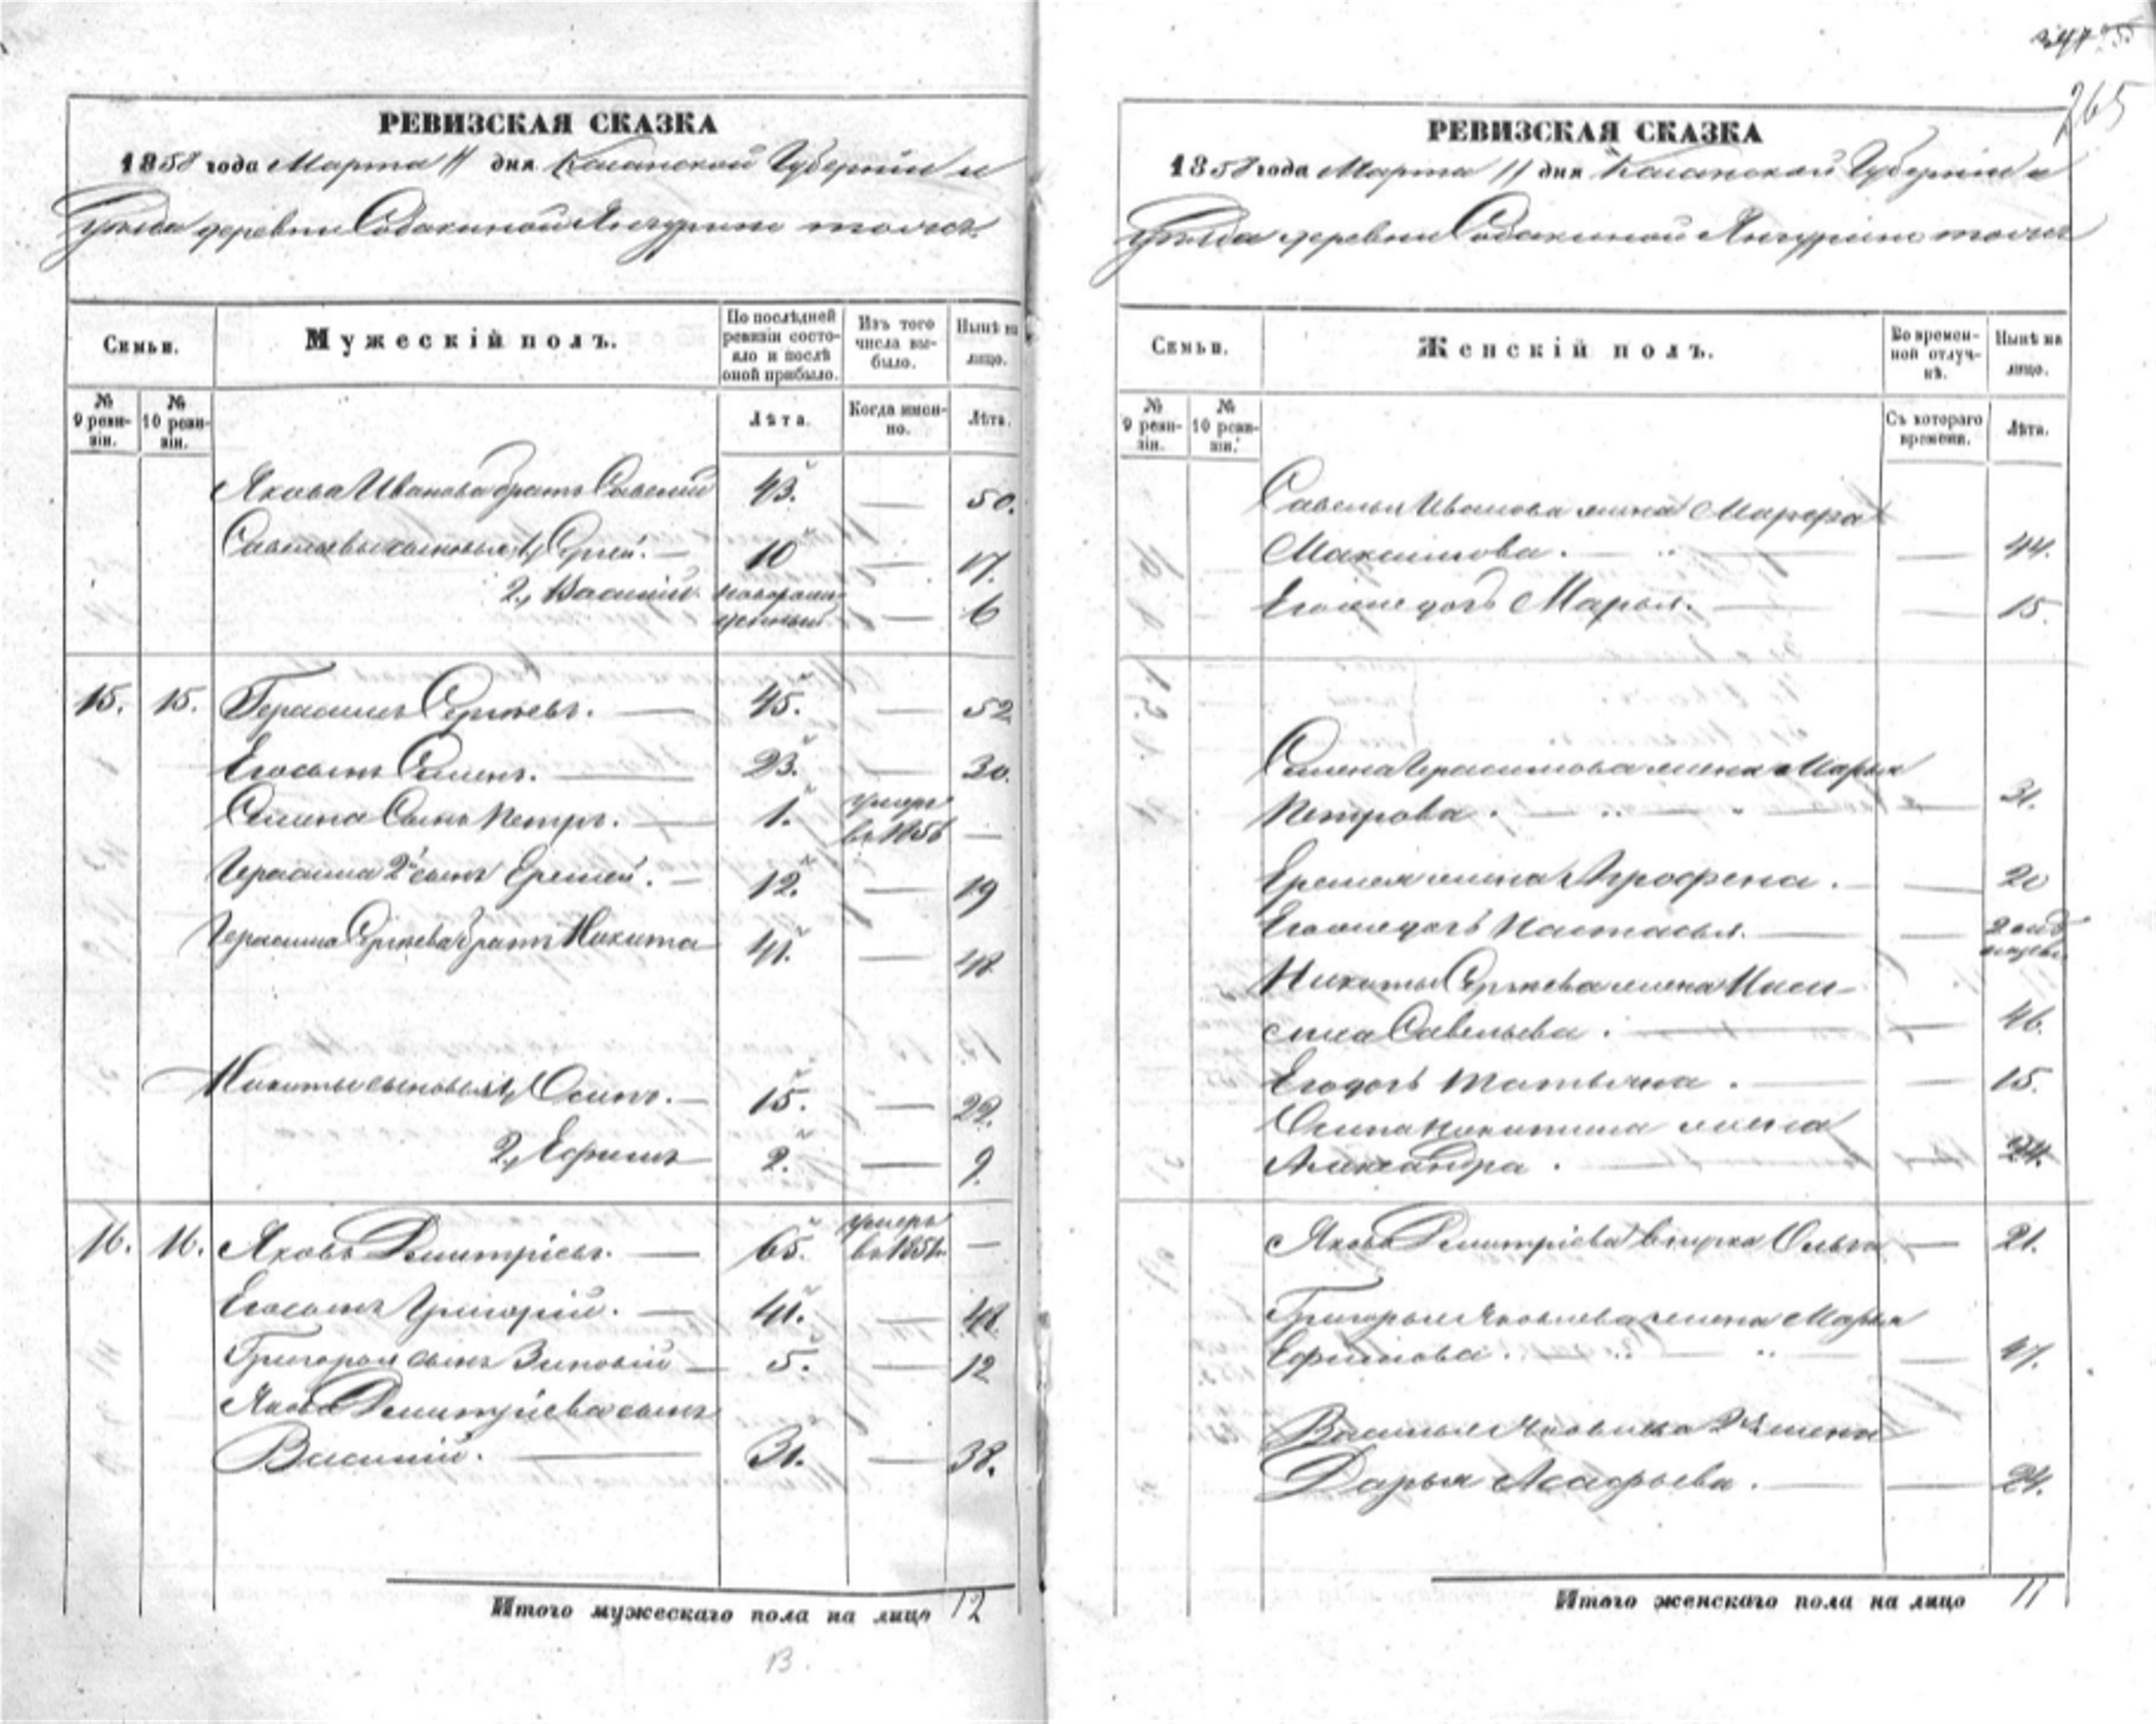 265
РЕВИЗСКАЯ СКАЗКА
1858 года Марта 11 дня Казанской Губернии и
Уезда деревни Собакиной Янгурчи тожъ
Семьи.
Мужескій полъ.
По послѣдней ревизіи состояло и послѣ оной прибыло.
Изъ того числа выбыло.
Нынѣ на лицо.
№ 9 ревизіи.
№ 10 ревизіи.
Лѣта.
Когда именно.
Лѣта.
Якова Иванова братъ Савелий 43. — 50.
Савельевы сыновья 1, Сергей. — 10 — 17.
2, Василий. новорожденный — 6
15. 15. Герасимъ Сергѣевъ. — 45. — 52
Его сынъ Семенъ. — 23. — 30.
Семена Сынъ Петръ. — 1. умеръ въ 1856 —
Герасима 2й сынъ Еремей. — 12. — 19
Герасима Сергѣева братъ Никита 41. — 48
Никиты сыновья 1, Осипъ. — 15. — 22.
2, Ефимъ 2. — 9.
16. 16. Яковъ Дмитріевъ. — 65. умеръ въ 1851 —
Его сынъ Григорій. — 41. — 48.
Григорья сынъ Зиновій — 5. — 12
Якова Дмитріева сынъ
Василій. — 31. — 38.
Итого мужескаго пола на лицо 12
13.
РЕВИЗСКАЯ СКАЗКА
1858 года Марта 11 дня Казанской Губерніи и
Уезда деревни Собакиной Янгурчи тожъ
Семьи.
Женскій полъ.
Во временной отлучкѣ.
Нынѣ на лицо.
№ 9 ревизіи.
№ 10 ревизіи.
Съ котораго времени.
Лѣта.
Савелья Иванова жена Марфа
Максимова. — 44.
Его же дочь Марья. — 15.
Семена Герасимова жена Марья
Петрова. — 31.
Еремея жена Агрофена. — 20
Его же дочь Настасья. —
Никиты Сергѣева жена
Савельева. — 46.
Его дочь Татьяна. — 15.
Осипа Никитина жена
Александра. — 24.
Якова Дмитріева внучка Ольга — 21.
Григорья Яковлева жена Марья
Ефимова. — 47.
Василья Яковлева 2я жена
Дарья Асафьева. — 24.
Итого женскаго пола на лицо 11